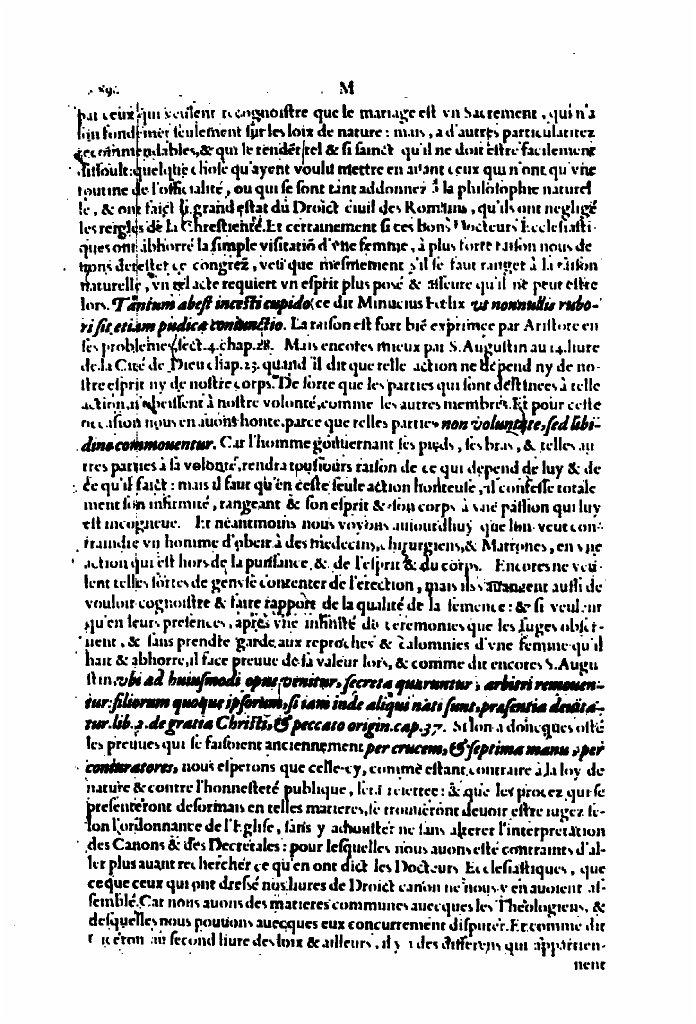 M
par ceux qui veulent recognoistre que le mariage est vn Sacrement, qui n'a
son fondement seulement sur les loix de nature: mais, a d'autres particularitez
recommendables, & qui le rendēt tel & si sainct qu'il ne doit estre facilement
dissoult: quelque chose qu'ayent voulu mettre en auant ceux qui n'ont qu'vne
routine de l'officialité, ou qui se sont tant addonnez à la philosophie naturel
le, & ont faict si grand estat du Droict ciuil des Romains, qu'ils ont negligé
les reigles de la Chrestienté. Et certainement si ces bons Docteurs Ecclesiasti-
ques ont abhorré la simple visitatiō d'vne femme, à plus forte raison nous de
uons detester ce congrez, veu que mesmement s'il se faut ranger à la raison
naturelle, vn tel acte requiert vn esprit plus posé & asseuré qu'il ne peut estre
lors. Tantum abest incesti cupido (ce dit Minucius Fœlix vt nonnullis rubo-
ri sit, etiam pudica coniunctio. La raison est fort biē exprimee par Aristote en
ses problemes, sect. 4. chap. 28. Mais encores mieux par S. Augustin au 14. liure
de la Cité de Dieu chap. 23. quand il dit que telle action ne depend ny de no-
stre esprit ny de nostre corps. De sorte que les parties qui sont destinees à telle
action, n'obeissent à nostre volonté, comme les autres membres. Et pour ceste
occasion nous en auons honte, parce que telles parties non voluntate, sed libi-
dine commouentur. Car l'homme gouuernant ses pieds, ses bras, & telles au
tres parties à sa volonté, rendra tousiours raison de ce qui depend de luy & de
ce qu'il faict: mais il faut qu'en ceste seule action honteuse, il confesse totale
ment son infirmité, rangeant & son esprit & son corps à vne passion qui luy
est incogneue. Et neantmoins nous voyons auiourd'huy que lon veut con-
traindre vn homme d'obeir à des medecins, chirurgiens, & Matrones, en vne
action qui est hors de la puissance, & de l'esprit & du corps. Encores ne veu-
lent telles sortes de gens se contenter de l'erection, mais ils s'arrangent aussi de
vouloir cognoistre & faire rapport de la qualité de la semence: & si veulent
qu'en leurs presences, apres vne infinité de ceremonies que les Iuges obser-
uent, & sans prendre garde aux reproches & calomnies d'vne femme qu'il
hait & abhorre, il face preuue de sa valeur lors, & comme dit encores S. Augu
stin, vbi ad huiusmodi opus venitur, secreta quæruntur, arbitri remouen-
tur: filiorum quoque ipsorum, si iam inde aliqui nati sunt, præsentia deuita-
tur. lib. 2. de gratia Christi, & peccato origin. cap. 37. Si lon a doncques osté
les preuues qui se faisoient anciennement per crucem, & septima manu, per
coniuratores, nous esperons que celle-cy, comme estant contraire à la loy de
nature & contre l'honnesteté publique, sera reiettee: & que les procez qui se
presenteront desormais en telles matieres, se trouueront deuoir estre iugez se-
lon l'ordonnance de l'Eglise, sans y adiouster ne sans alterer l'interpretation
des Canons & des Decretales: pour lesquelles nous auons esté contraints d'al-
ler plus auant rechercher ce qu'en ont dict les Docteurs Ecclesiastiques, que
ce que ceux qui ont dressé nos liures de Droict canon ne nous y en auoient as-
semblé. Car nous auons des matieres communes auecques les Theologiens, &
desquelles nous pouuons auecques eux concurrement disputer. Et comme dit
Ciceron au second liure des loix & ailleurs, il y a des differens qui appartien-
nent